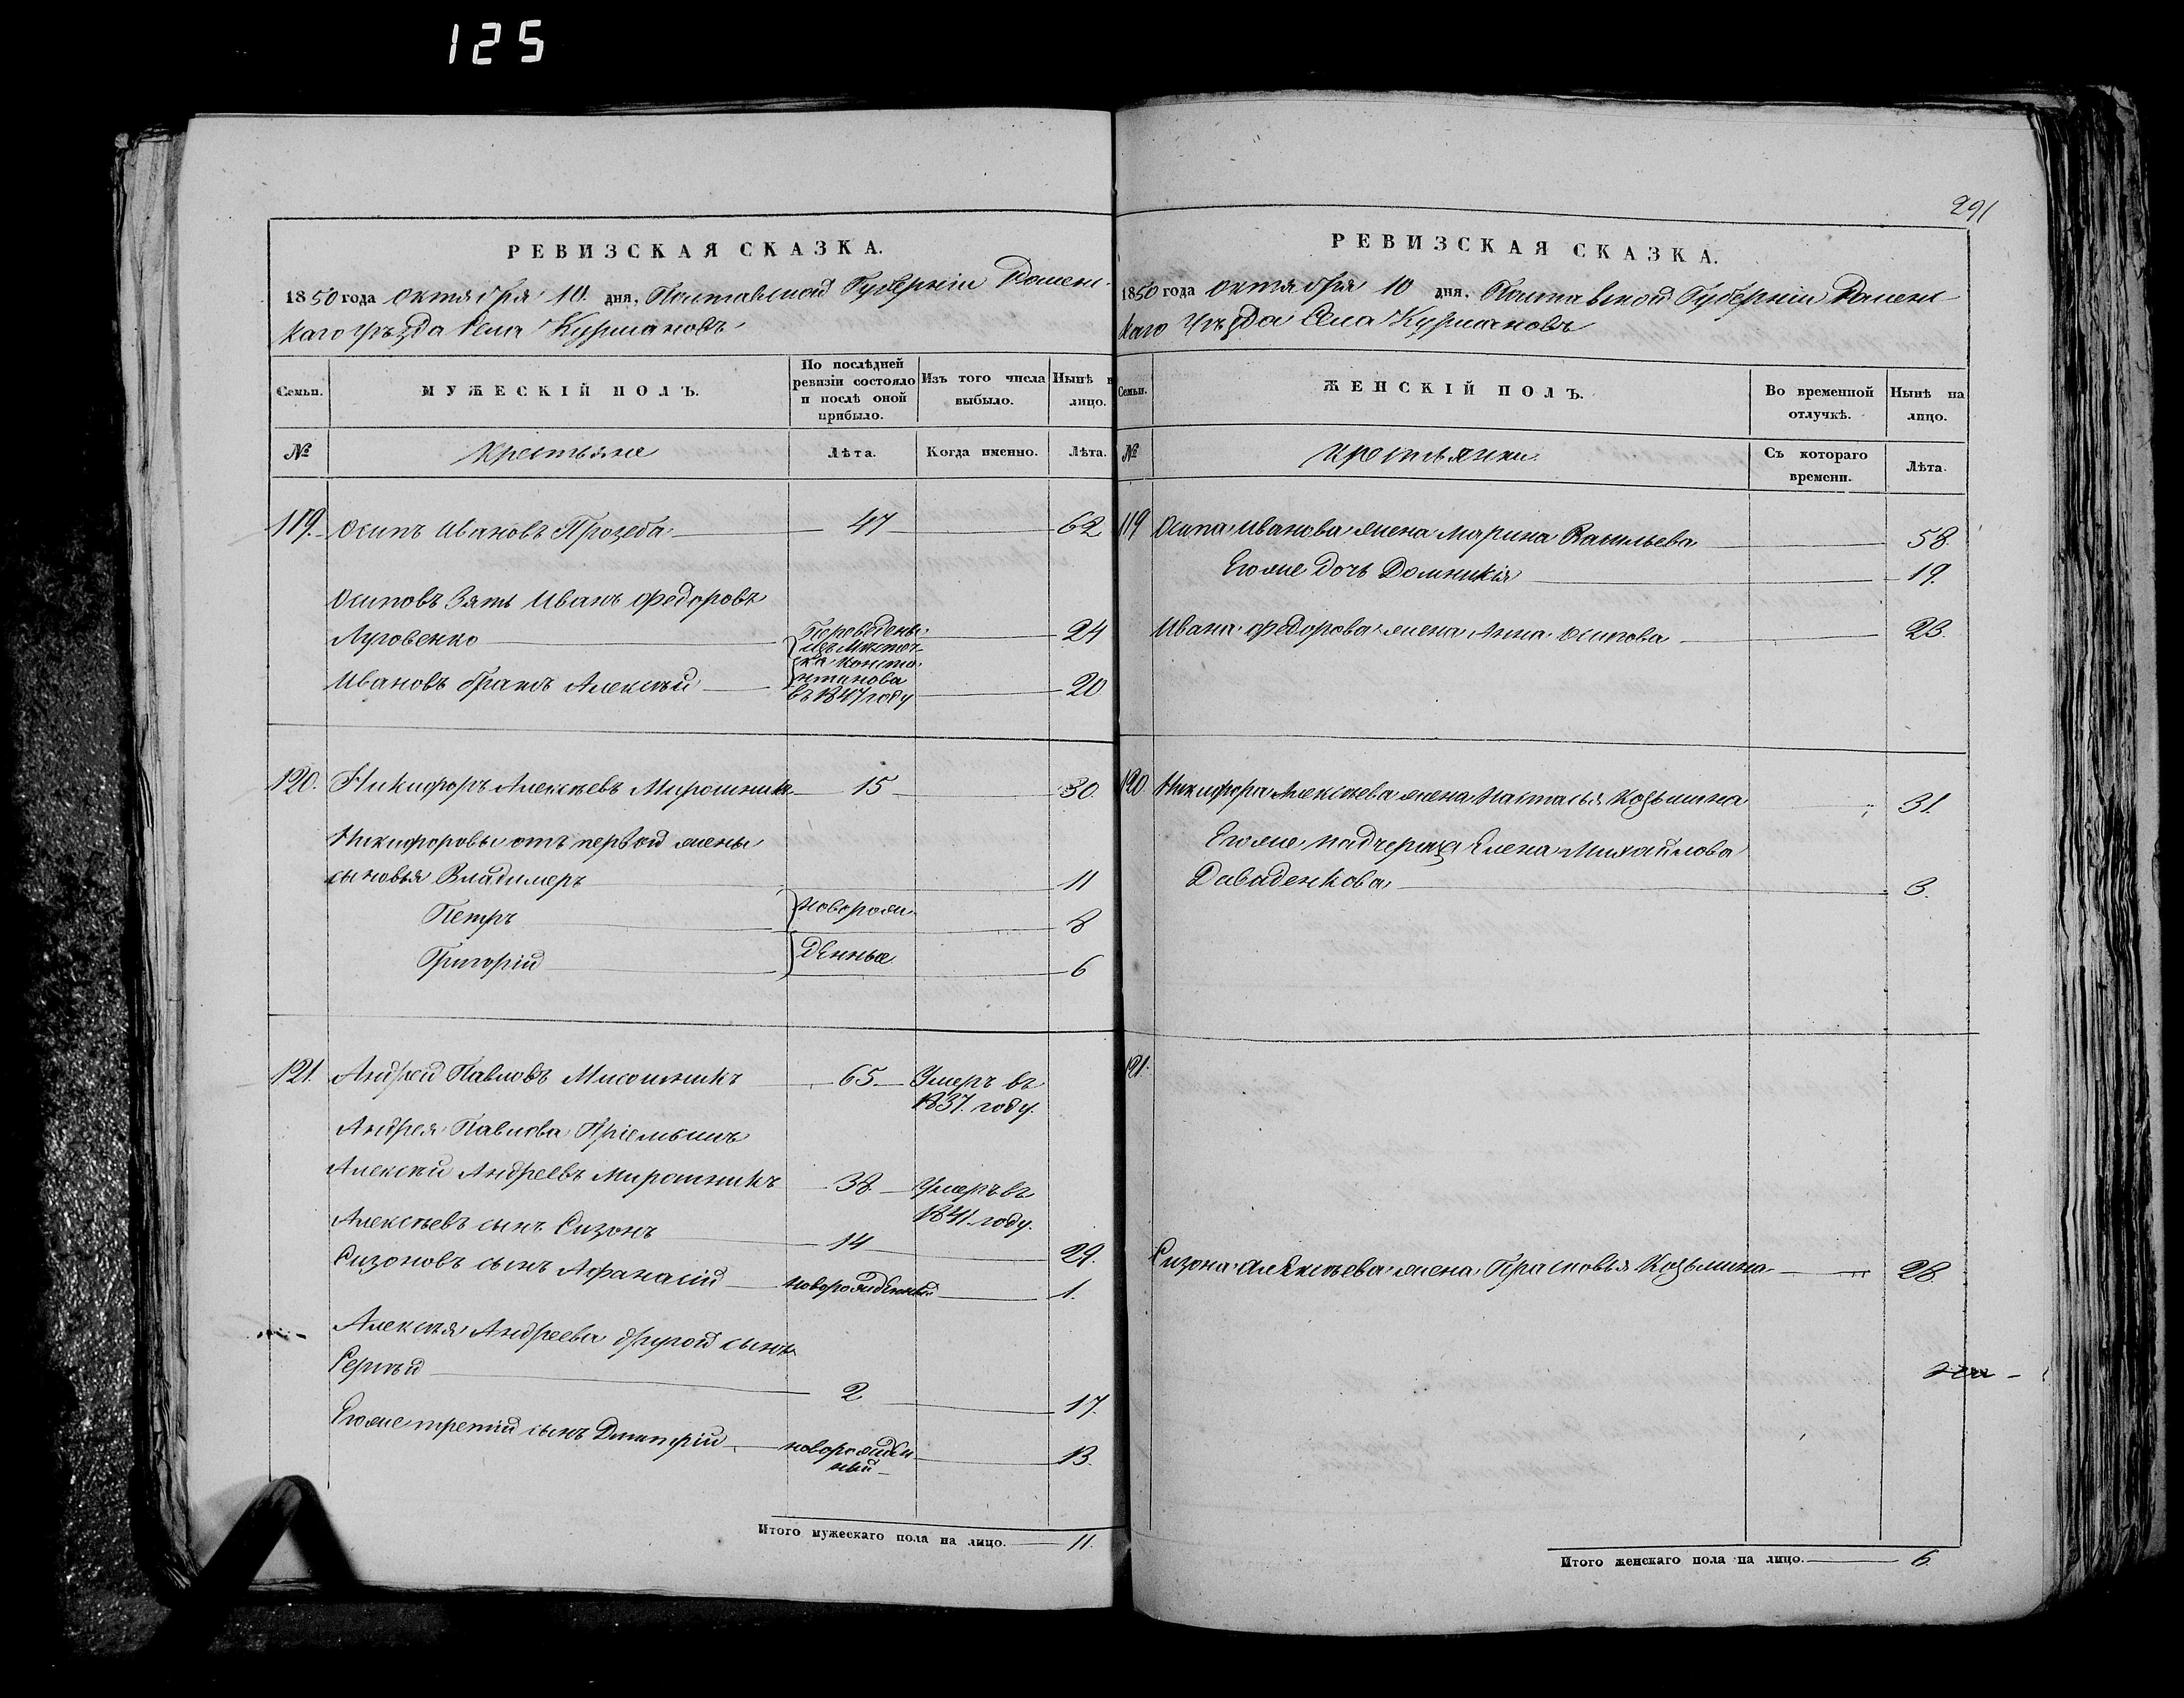 125
РЕВИЗСКАЯ СКАЗКА.
1850 года октября 10. дня, Полтавской Губерніи Ромен-
каго уѣзда Села Курмановъ
Семьи.
МУЖЕСКІЙ ПОЛЪ.
По послѣдней ревизіи состояло и послѣ оной прибыло.
Изъ того числа выбыло.
Нынѣ н лицо.
№
Крестьяне
Лѣта.
Когда именно.
Лѣта.
119. Осипъ Ивановъ Прозеба 47 62
Осиповъ Зять Иванъ Федоровъ
Луговенко 24
Ивановъ братъ Алексѣй 20
Переведены
изъ Мѣстеч-
ка Конста-
нтинова
въ 1847 году
120. Никифоръ Алексѣевъ Мирошникъ 15 30.
Никифоровы отъ первой жены
сыновья Владимеръ 11
Петръ 8
Григорій 6
новорож-
денные
121. Андрей Павловъ Мисошникъ 65 Умеръ въ
1837. году.
Андрея Павлова Пріемышъ
Алексѣй Андреевъ Мирошникъ 38. Умеръ въ
1841. году.
Алексѣевъ сынъ Сизонъ 14 29.
Сизоновъ сынъ Афанасій новорожденный 1.
Алексѣя Андреева другой сынъ
Сергѣй 2 17.
Его же третій сынъ Дмитрій новорожден-
ный 13.
Итого мужескаго пола на лицо. 11.
291
РЕВИЗСКАЯ СКАЗКА.
1850 года октября 10 дня, Полтавской Губерніи Ромен-
каго Уѣзда Села Курмановъ
Семьи.
ЖЕНСКІЙ ПОЛЪ.
Во временной отлучкѣ.
Нынѣ на лицо.
№
Крестьянки
Съ котораго времени.
Лѣта.
119 Осипа Иванова жена Марина Васильева 58.
Его же дочь Домникія 19.
Ивана Федорова жена Анна Осипова 23.
120. Никифора Алексѣева жена Настасья Козьмина 31.
Его же падчерица Елена Михайлова
Давиденкова 3.
121.
Сизона Алексѣева жена Прасковья Козьмина 28
Итого женскаго пола на лицо. 6.